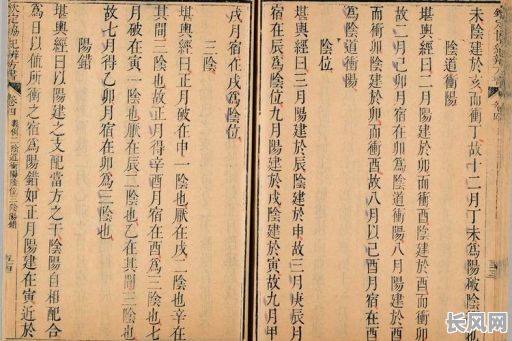 未陰建於亥而衝丁故十二月丁未為陽破陰
陰道衝陽
堪輿經曰二月陽建於卯而衝酉陰建於酉而衝
故二月己卯月宿在卯為陰道衝陽八月陽建於酉
而衝卯陰建於卯而衝酉故八月以己酉月宿在酉
為陰道衝陽
陰位
堪輿經曰三月陽建於辰陰建於申故三月庚辰月
宿在辰為陰位九月陽建於戌陰建於寅故九月甲
戌月宿在戌為陰位
三陰
堪輿經曰正月破在申一陰也厭在戌二陰也辛在
其間三陰也故正月得辛酉月宿在酉為三陰也七
月破在寅一陰也厭在辰二陰也乙在其間三陰也
故七月得乙卯月宿在卯為三陰也
陽錯
堪輿經曰以陽建之支配當方之干陰陽自相配合
為日以值所衝之宿為陽錯如正月陽建在寅近於
欽定協紀辨方書
卷四
長风网